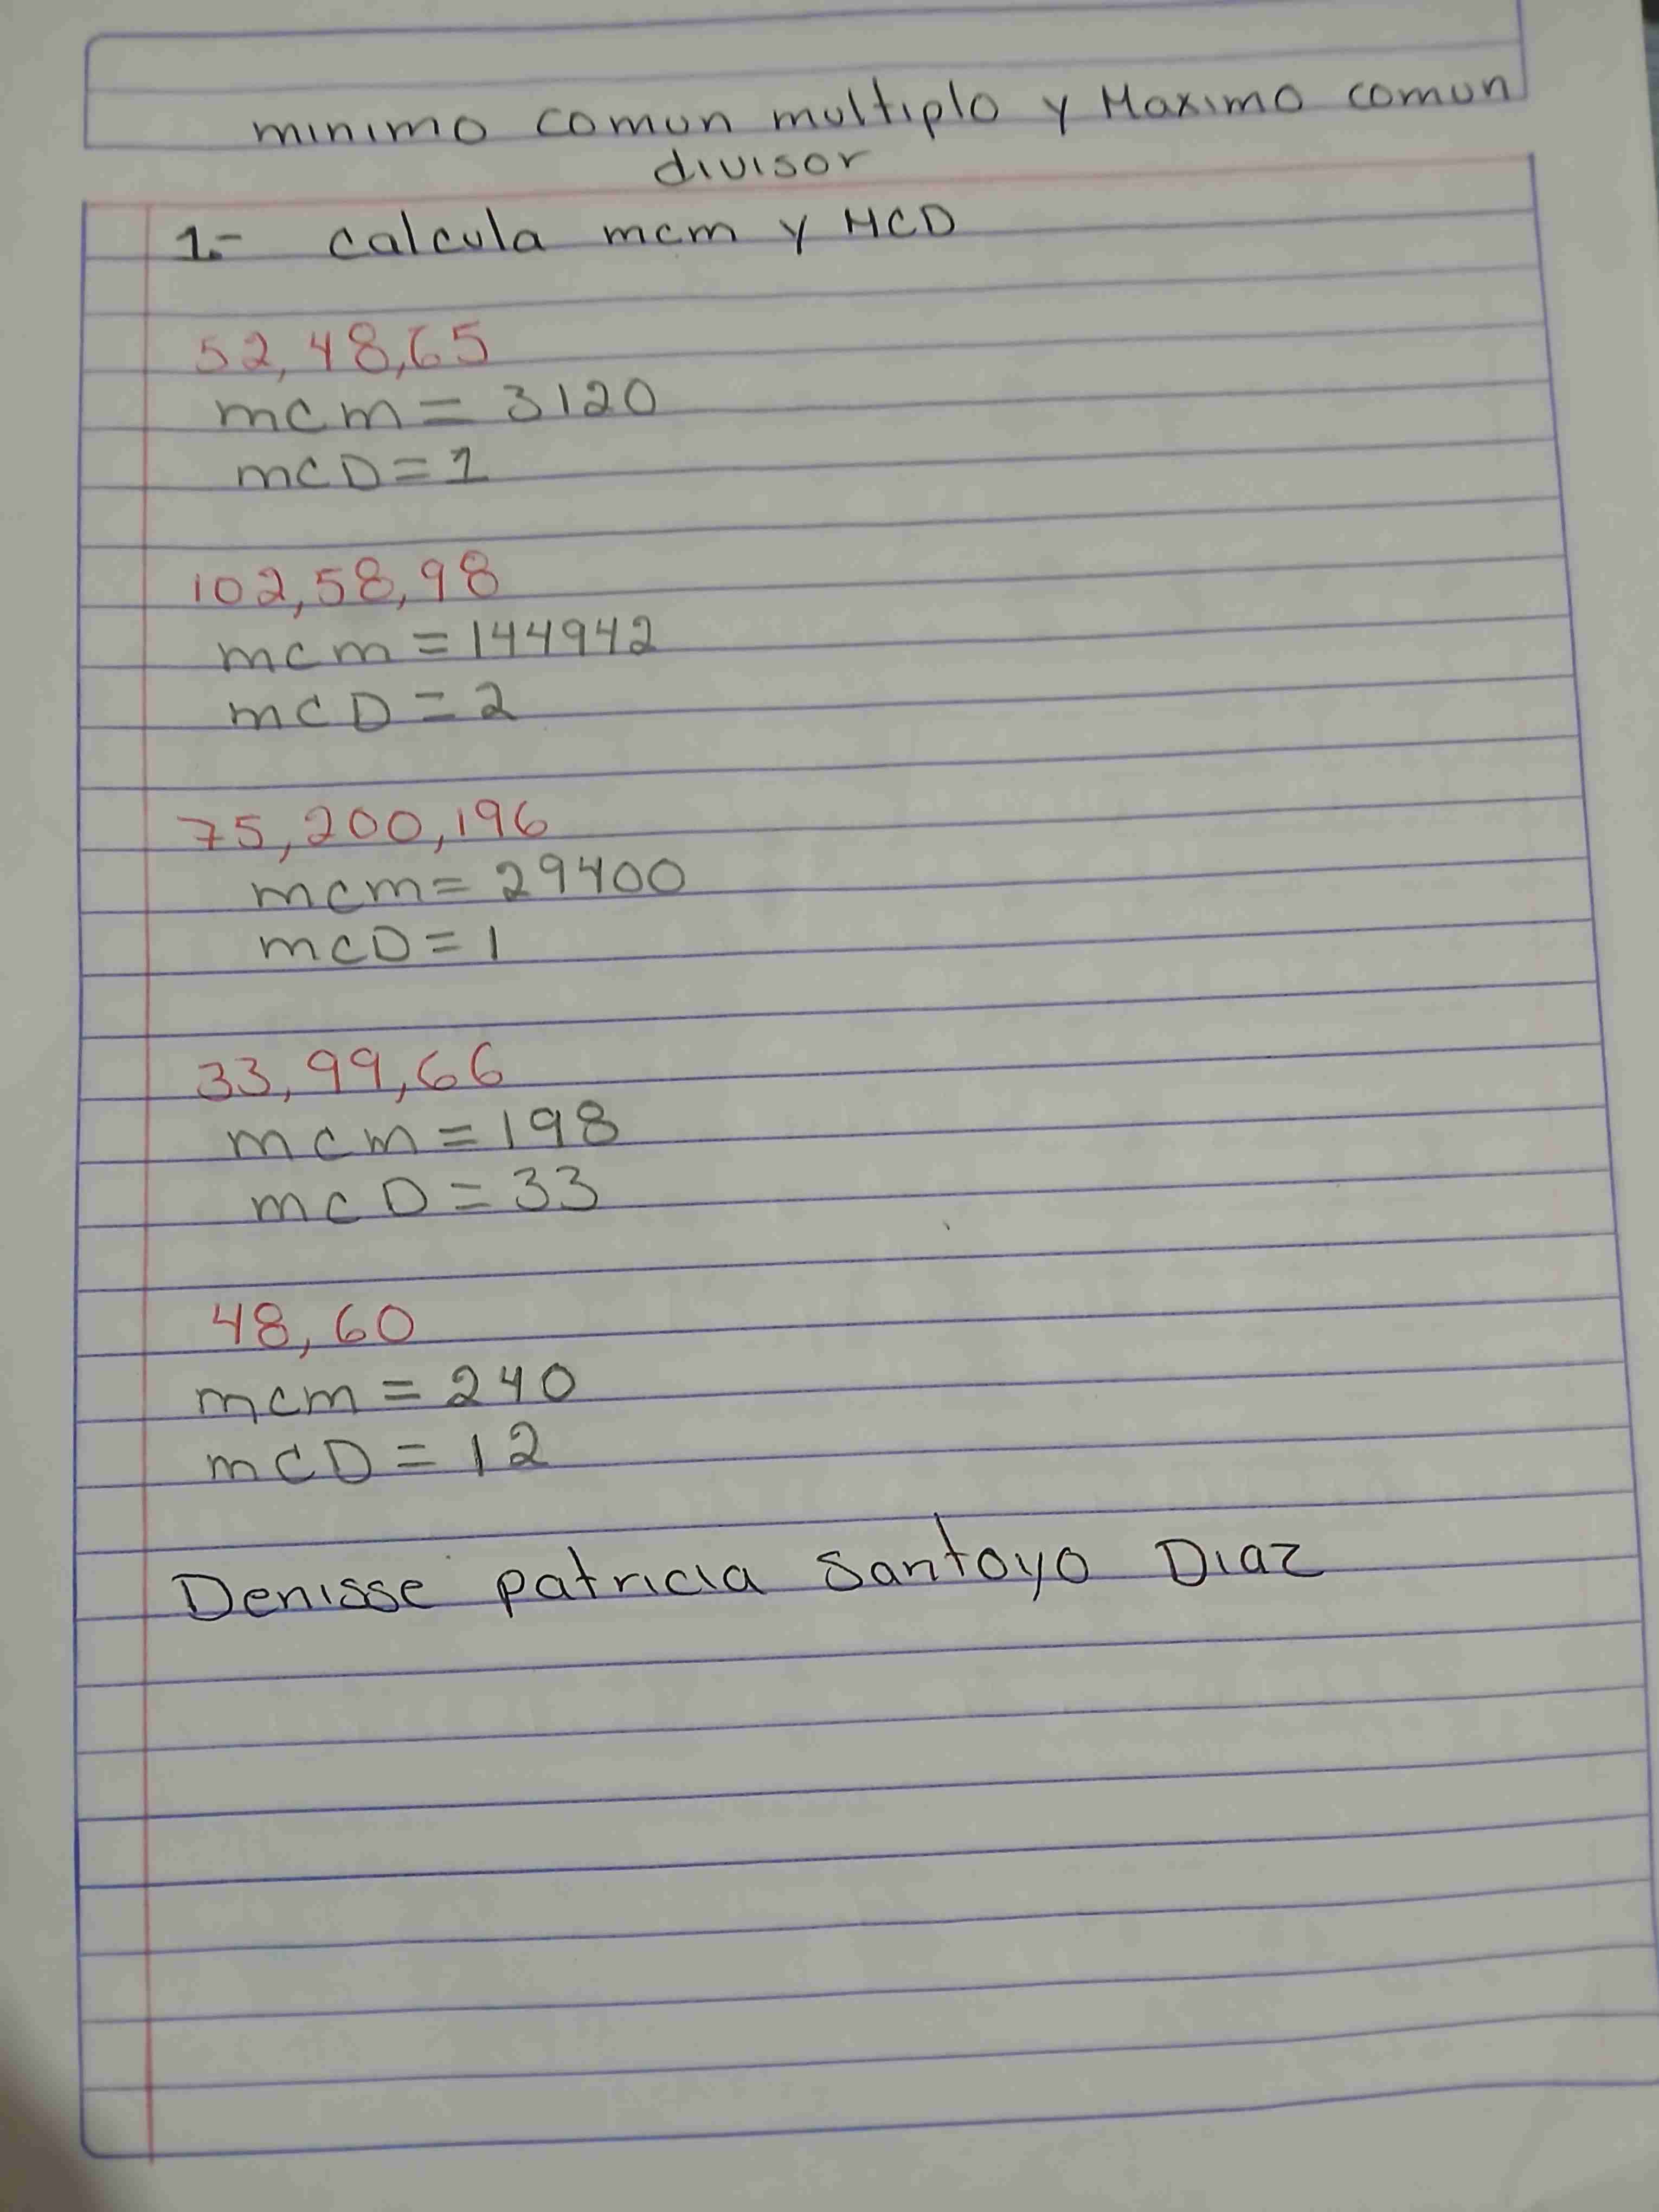 minimo comun multiplo y Maximo comun
divisor
1.- calcula mcm y MCD
52, 48, 65
mcm = 3120
mCD = 1
102, 58, 98
mcm = 144942
mCD = 2
75, 200, 196
mcm = 29400
mCD = 1
33, 99, 66
mcm = 198
mCD = 33
48, 60
mcm = 240
mCD = 12
Denisse patricia Santoyo Diaz